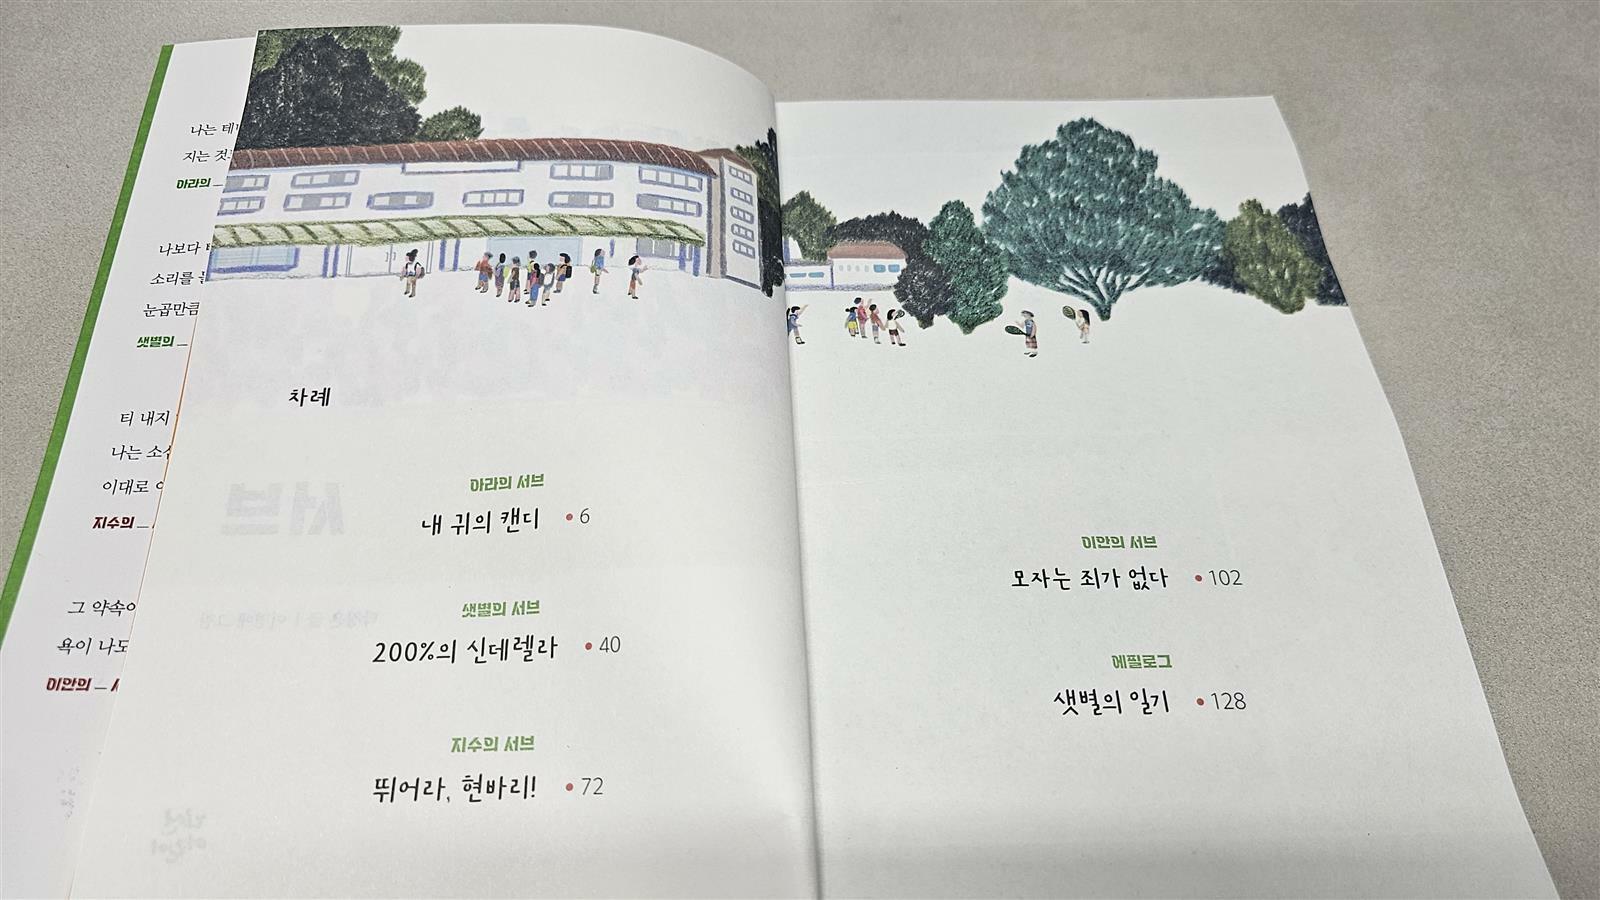 나는 테
지는 것
아라의
나보다
소리를
눈곱만큼
샛별의
티 내지
나는
이대로
지수의
그 약속이
욕이 나도
이안의
차례
아라의 서브
내 귀의 캔디 • 6
샛별의 서브
200%의 신데렐라 • 40
지수의 서브
뛰어라, 현바리! • 72
이안의 서브
모자는 죄가 없다 • 102
에필로그
샛별의 일기 • 128